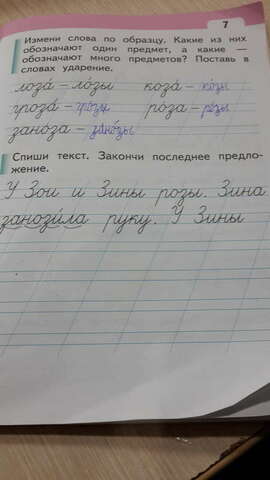 7
Измени слова по образцу. Какие из них
обозначают один предмет, а какие —
обозначают много предметов? Поставь в
словах ударение.
лоза́ – ло́зы коза́ – ко́зы
гроза́ – гро́зы ро́за – ро́зы
зано́за – зано́зы
Спиши текст. Закончи последнее предло-
жение.
У Зои и Зины розы. Зина
занози́ла руку. У Зины